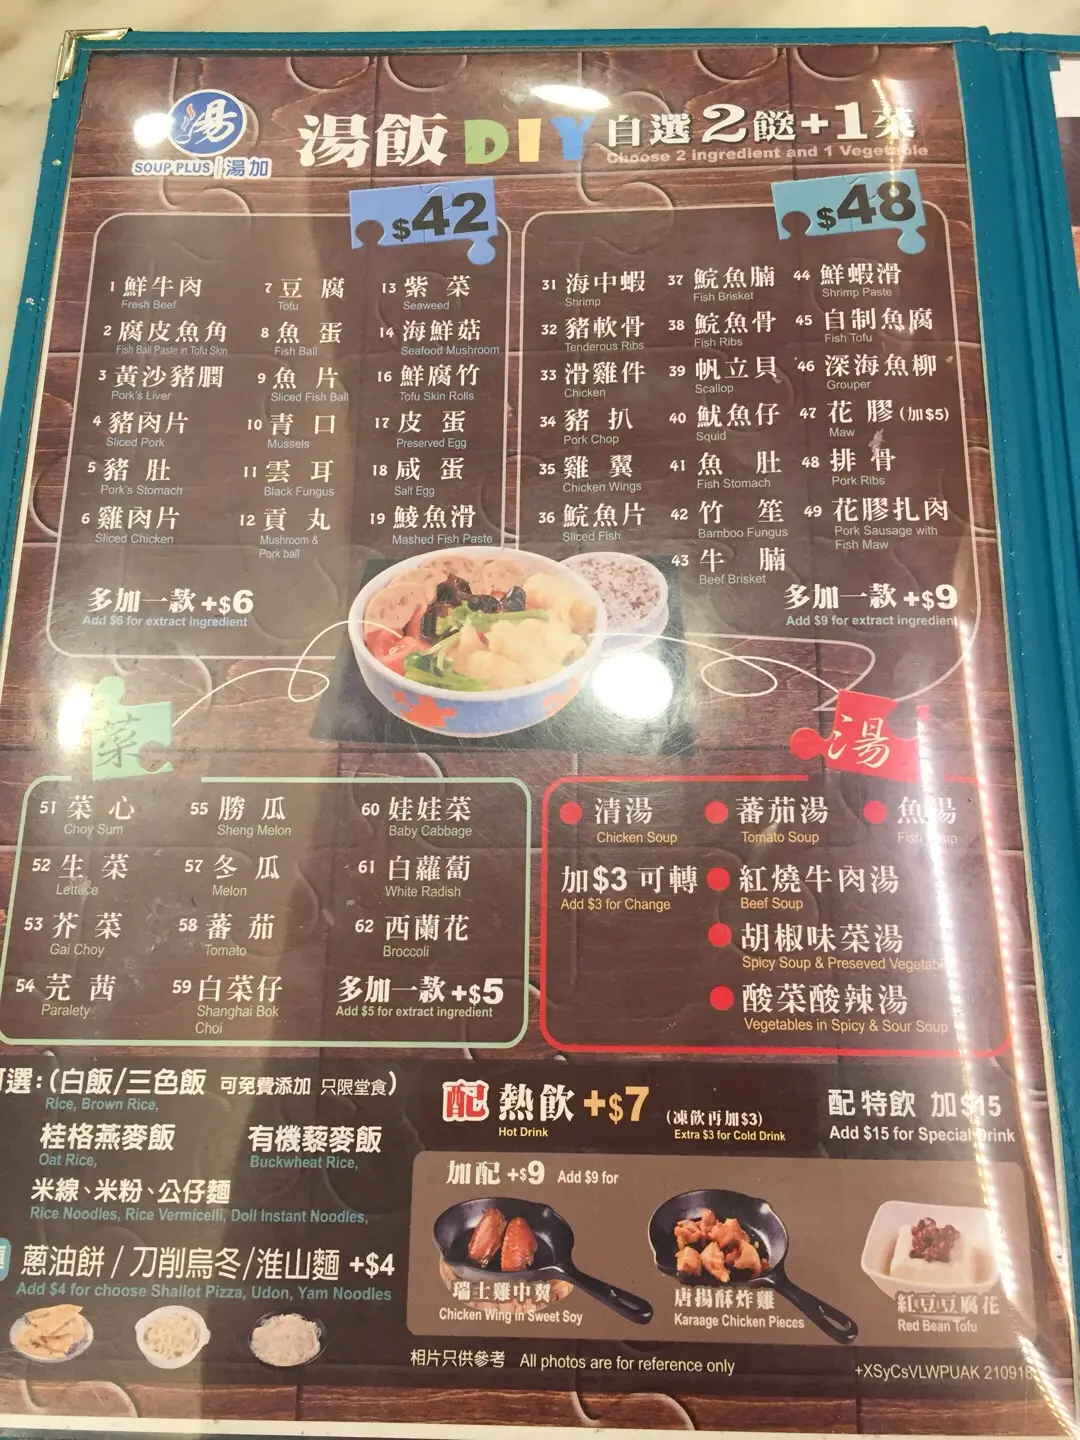 湯
SOUP PLUS | 湯加
湯飯 DIY 自選2餸+1菜
Choose 2 ingredient and 1 Vegetable
$42
1 鮮牛肉
Fresh Beef
2 腐皮魚角
Fish Ball Paste in Tofu Skin
3 黃沙豬膶
Pork's Liver
4 豬肉片
Sliced Pork
5 豬肚
Pork's Stomach
6 雞肉片
Sliced Chicken
7 豆腐
Tofu
8 魚蛋
Fish Ball
9 魚片
Sliced Fish Ball
10 青口
Mussels
11 雲耳
Black Fungus
12 貢丸
Mushroom &
Pork ball
13 紫菜
Seaweed
14 海鮮菇
Seafood Mushroom
16 鮮腐竹
Tofu Skin Rolls
17 皮蛋
Preserved Egg
18 咸蛋
Salt Egg
19 鯪魚滑
Mashed Fish Paste
多加一款 +$6
Add $6 for extract ingredient
$48
31 海中蝦
Shrimp
32 豬軟骨
Tenderous Ribs
33 滑雞件
Chicken
34 豬扒
Pork Chop
35 雞翼
Chicken Wings
36 鯇魚片
Sliced Fish
37 鯇魚腩
Fish Brisket
38 鯇魚骨
Fish Ribs
39 帆立貝
Scallop
40 魷魚仔
Squid
41 魚肚
Fish Stomach
42 竹笙
Bamboo Fungus
43 牛腩
Beef Brisket
44 鮮蝦滑
Shrimp Paste
45 自制魚腐
Fish Tofu
46 深海魚柳
Grouper
47 花膠 (加$5)
Maw
48 排骨
Pork Ribs
49 花膠扎肉
Pork Sausage with
Fish Maw
多加一款 +$9
Add $9 for extract ingredient
菜
51 菜心
Choy Sum
52 生菜
Lettece
53 芥菜
Gai Choy
54 芫茜
Paralety
55 勝瓜
Sheng Melon
57 冬瓜
Melon
58 蕃茄
Tomato
59 白菜仔
Shanghai Bok
Choi
60 娃娃菜
Baby Cabbage
61 白蘿蔔
White Radish
62 西蘭花
Broccoli
多加一款 +$5
Add $5 for extract ingredient
湯
清湯
Chicken Soup
蕃茄湯
Tomato Soup
魚湯
Fish Soup
加$3可轉
Add $3 for Change
紅燒牛肉湯
Beef Soup
胡椒味菜湯
Spicy Soup & Preseved Vegetabl
酸菜酸辣湯
Vegetables in Spicy & Sour Soup
可選:(白飯/三色飯 可免費添加 只限堂食)
Rice, Brown Rice,
桂格燕麥飯
Oat Rice,
有機藜麥飯
Buckwheat Rice,
米線、米粉、公仔麵
Rice Noodles, Rice Vermicelli, Doll Instant Noodles,
蔥油餅/刀削烏冬/淮山麵 +$4
Add $4 for choose Shallot Pizza, Udon, Yam Noodles
配 熱飲 +$7 (凍飲再加$3)
Hot Drink
Extra $3 for Cold Drink
配特飲 加$15
Add $15 for Special Drink
加配 +$9 Add $9 for
瑞士雞中翼
Chicken Wing in Sweet Soy
唐揚酥炸雞
Karaage Chicken Pieces
紅豆豆腐花
Red Bean Tofu
相片只供參考 All photos are for reference only
+XSyCsVLWPUAK 210918